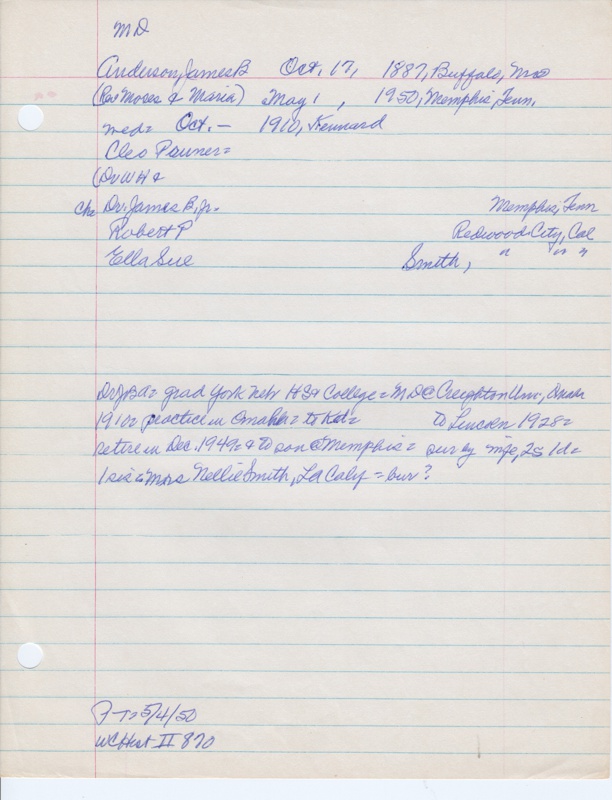 MD
Anderson, James B Oct. 17, 1887, Buffalo, Mo
(Rev Moses & Maria) May 1, 1950, Memphis, Tenn.
med= Oct. — 1910, Kennard
Cleo
(Dr WH &
Ch= Dr. James B, Jr. Memphis, Tenn
Robert P Redwood City, Cal
Ella Sue Smith, " " "
Dr JBA= grad York Nebr HS & College = MD @ Creighton Univ, Omaha
1910= practice in Omaha= to Kd= to Lincoln 1928=
retire in Dec. 1949= & to son @ Memphis= sur by wife, 2s 1d=
1 sis= Mrs Nellie Smith, La Calif = bur?
P-T= 5/4/50
WC Hist II 870